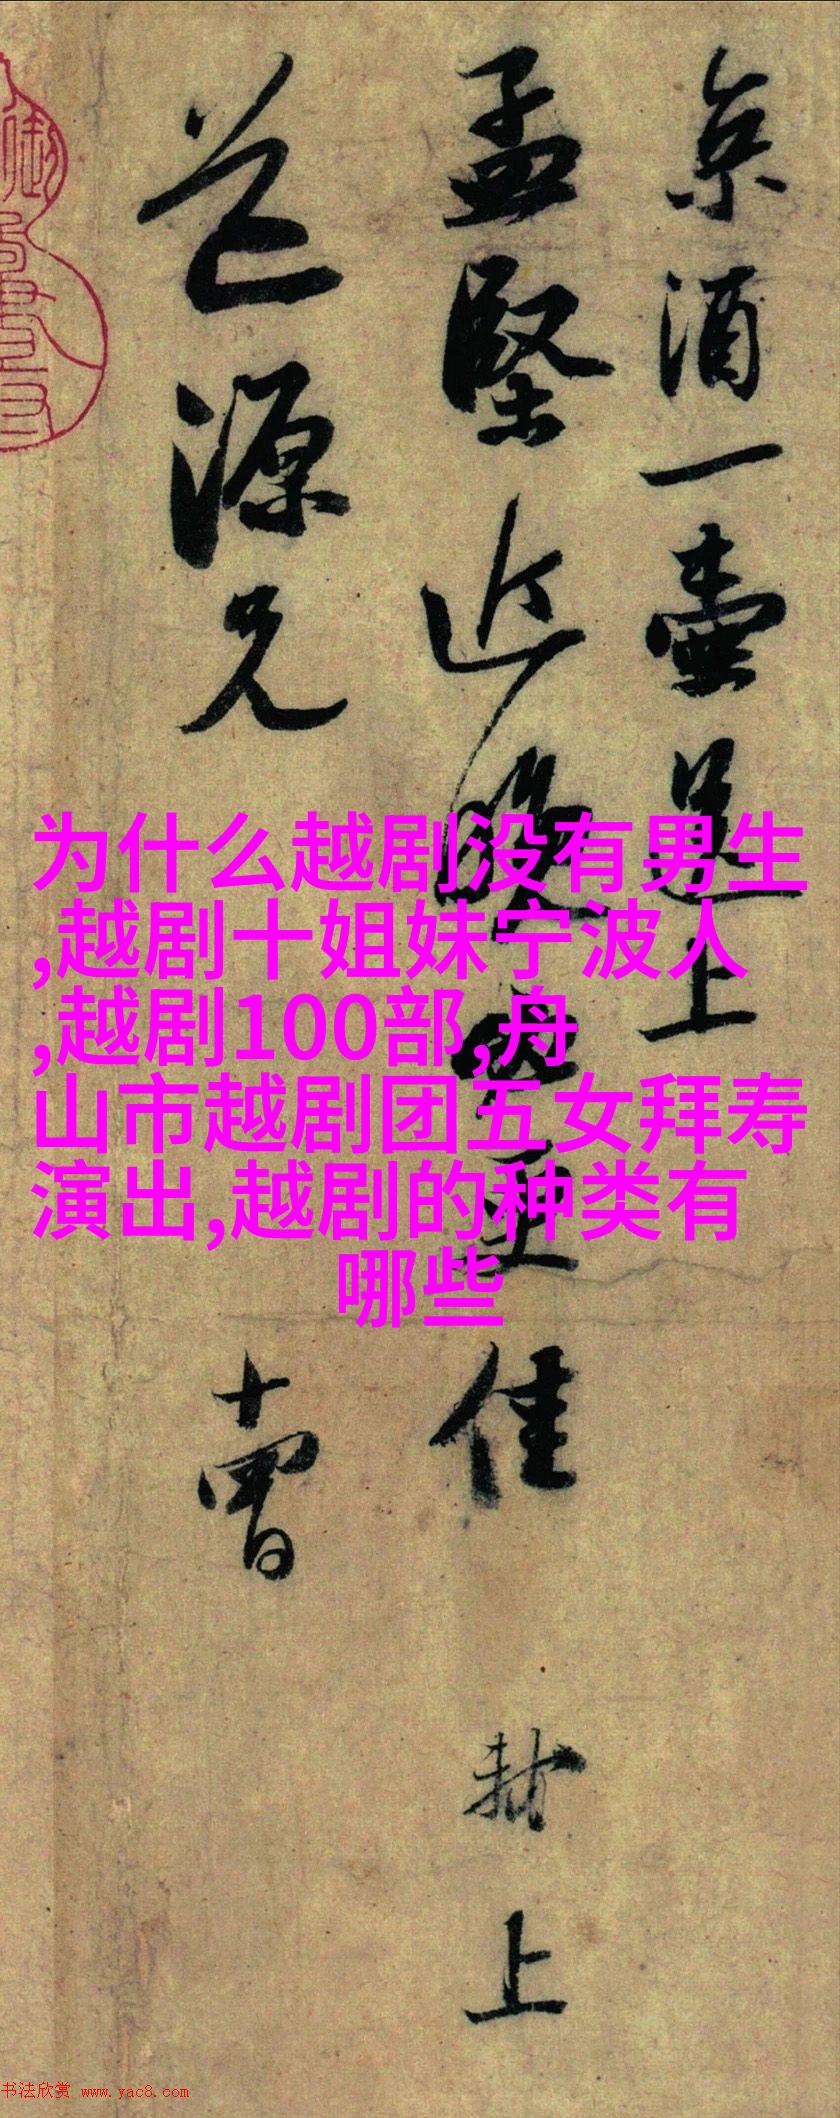 京酒一壺送上
孟堅近晚必更佳 芾上
道源兄 十四日
为什么越剧没有男生
,越剧十姐妹宁波人
,越剧100部,舟
山市越剧团五女拜寿
演出,越剧的种类有
哪些
书法欣赏 www.yac8.com